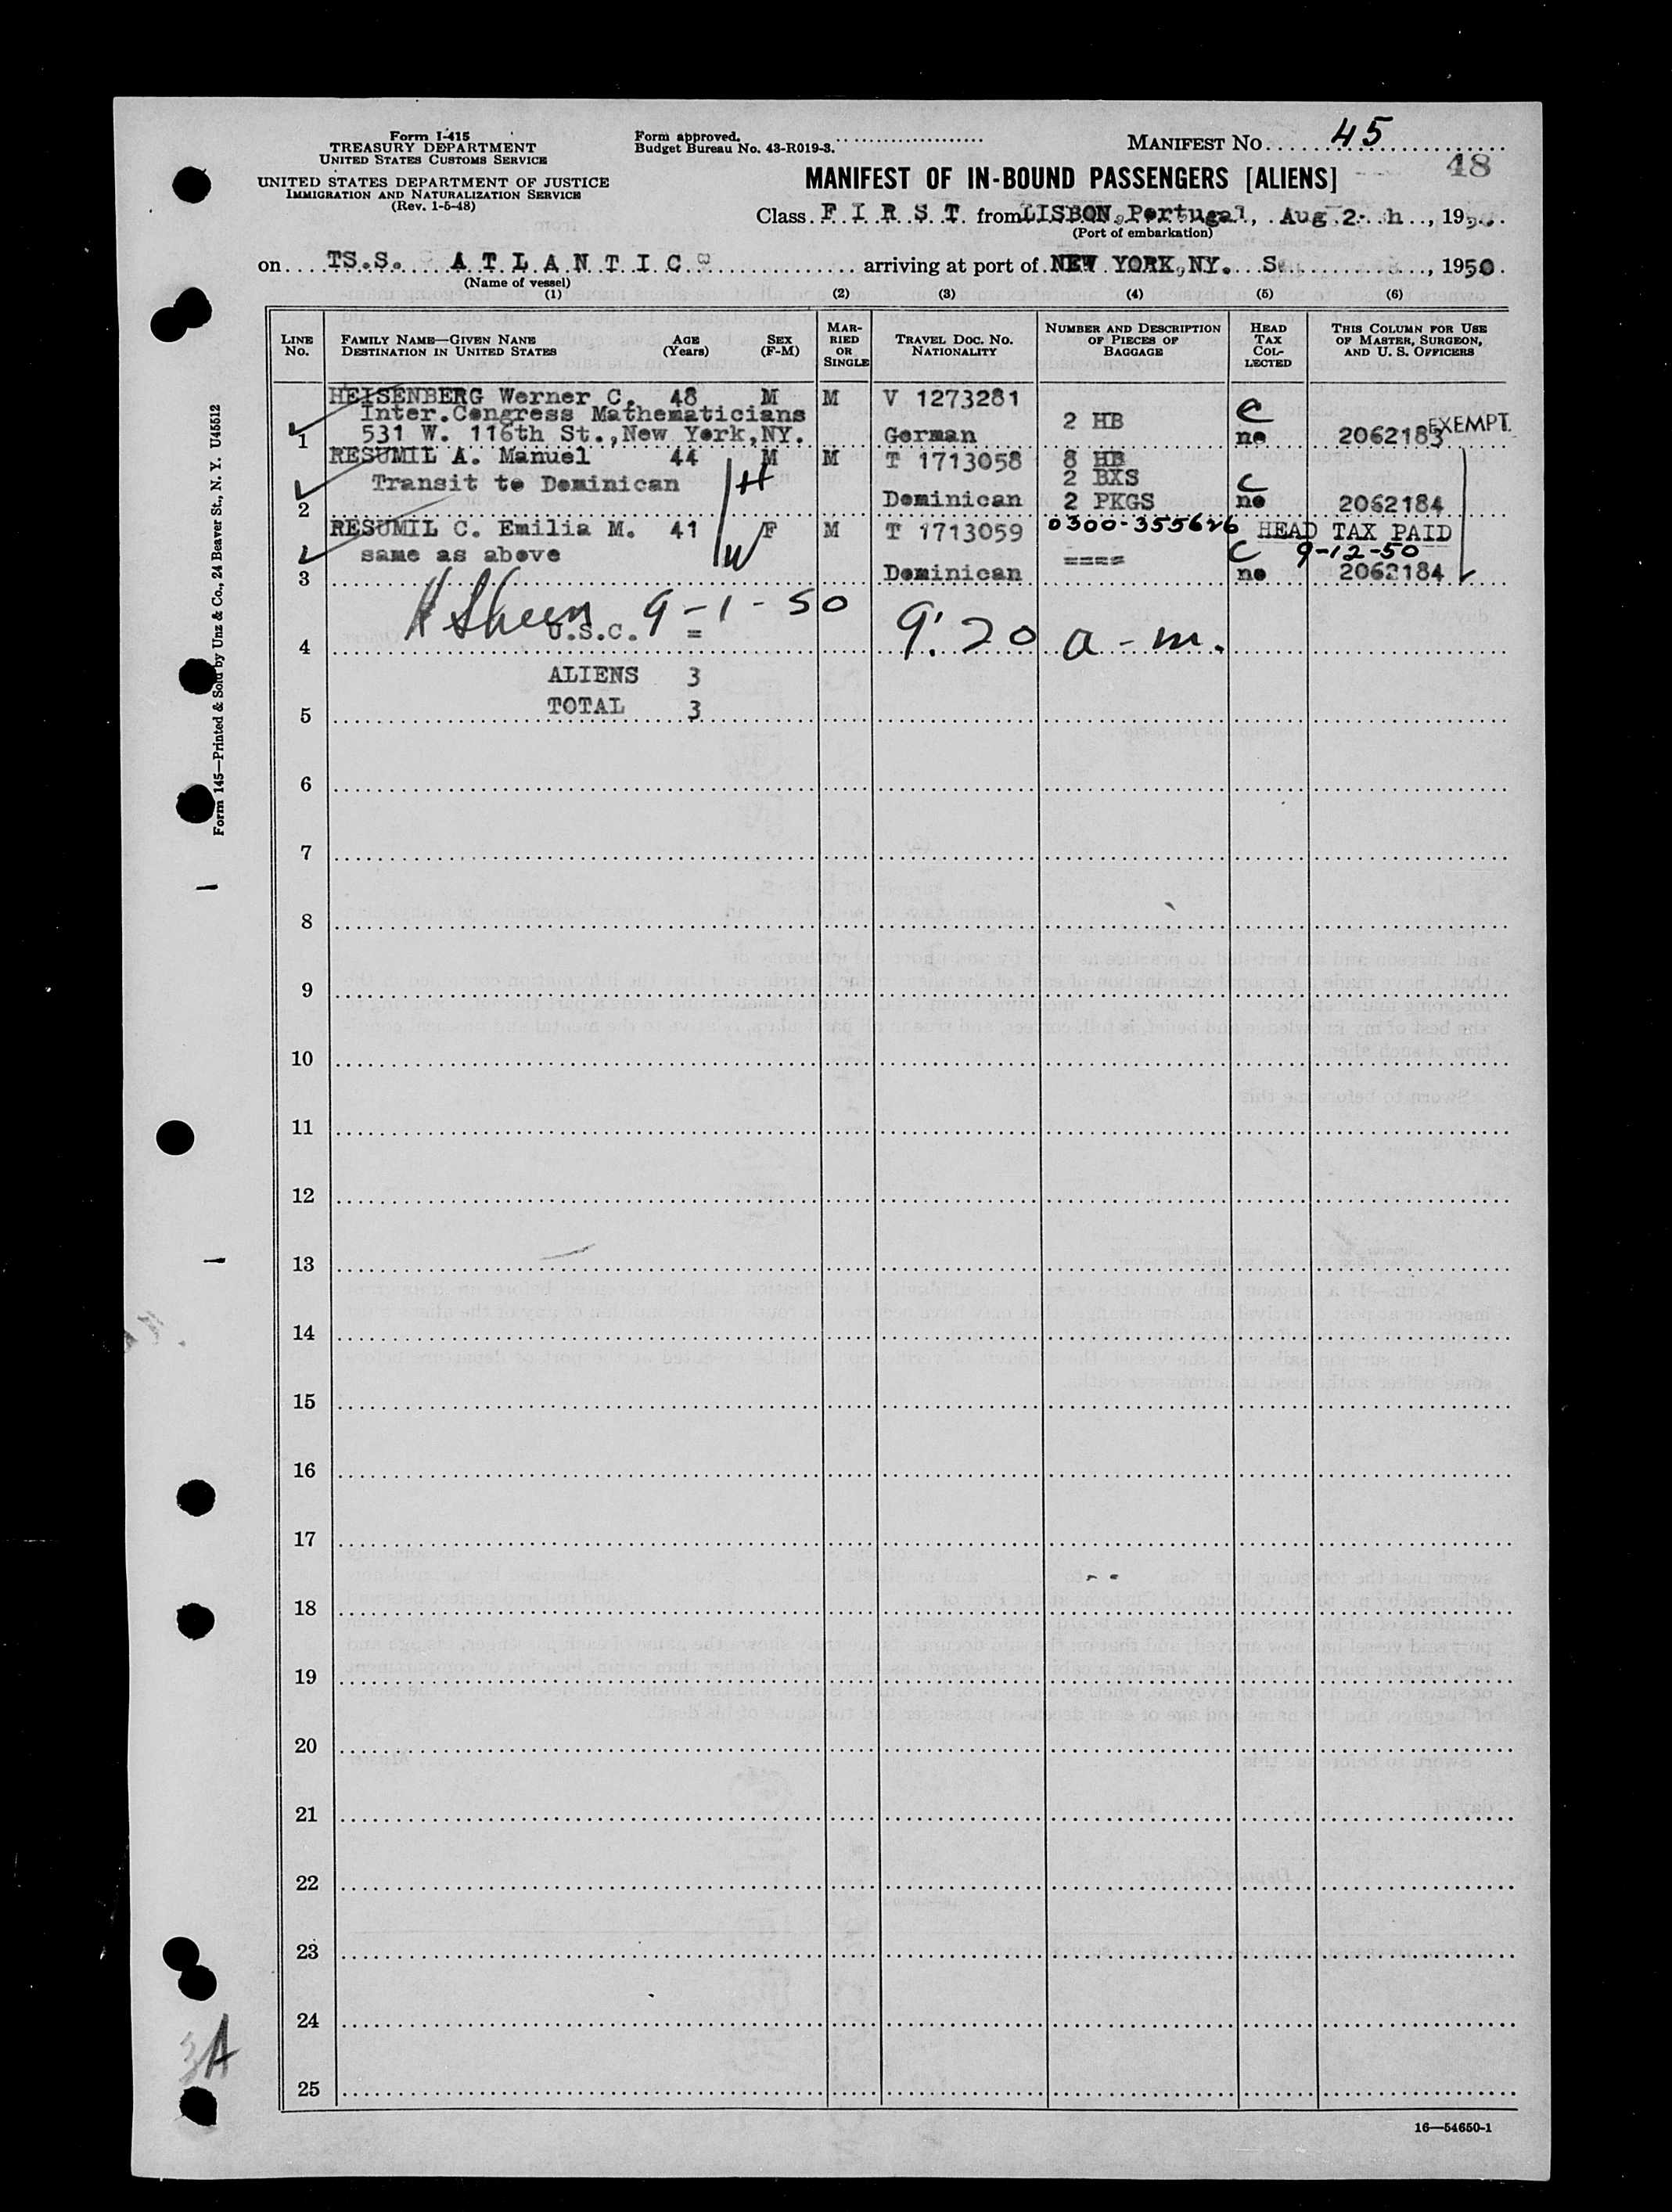 Form I-415
TREASURY DEPARTMENT
UNITED STATES CUSTOMS SERVICE
UNITED STATES DEPARTMENT OF JUSTICE
IMMIGRATION AND NATURALIZATION SERVICE
(Rev. 1-5-48)
Form approved.
Budget Bureau No. 43-R019-3.
MANIFEST NO. 45
48
MANIFEST OF IN-BOUND PASSENGERS [ALIENS]
Class F I R S T from LISBON, Portugal, Aug 2 h, 195
(Port of embarkation)
on TS.S. A T L A N T I C arriving at port of NEW YORK, NY. S , 1950.
(Name of vessel)
(1) (2) (3) (4) (5) (6)
LINE NO.
FAMILY NAME—GIVEN NANE
DESTINATION IN UNITED STATES
AGE (Years)
SEX (F-M)
MARRIED OR SINGLE
TRAVEL DOC. NO. NATIONALITY
NUMBER AND DESCRIPTION OF PIECES OF BAGGAGE
HEAD TAX COLLECTED
THIS COLUMN FOR USE OF MASTER, SURGEON, AND U. S. OFFICERS
HEISENBERG Werner C. 48 M M V 1273281
Inter.Congress Mathematicians 2 HB C EXEMPT
1 531 W. 116th St.,New York,NY. German no 2062183
RESUMIL A. Manuel 44 M M T 1713058 8 HB
Transit to Dominican H 2 BXS C
2 Dominican 2 PKGS no 2062184
RESUMIL C. Emilia M. 41 F M T 1713059 0300-355626 HEAD TAX PAID
same as above W ==== C 9-12-50
3 Dominican no 2062184
H Sheen 9-1-50 9:20 a-m.
4 U.S.C. =
ALIENS 3
5 TOTAL 3
6
7
8
9
10
11
12
13
14
15
16
17
18
19
20
21
22
23
24
25
3A
16—54650-1
Form 145—Printed & Sold by Unz & Co., 24 Beaver St., N. Y. U45512